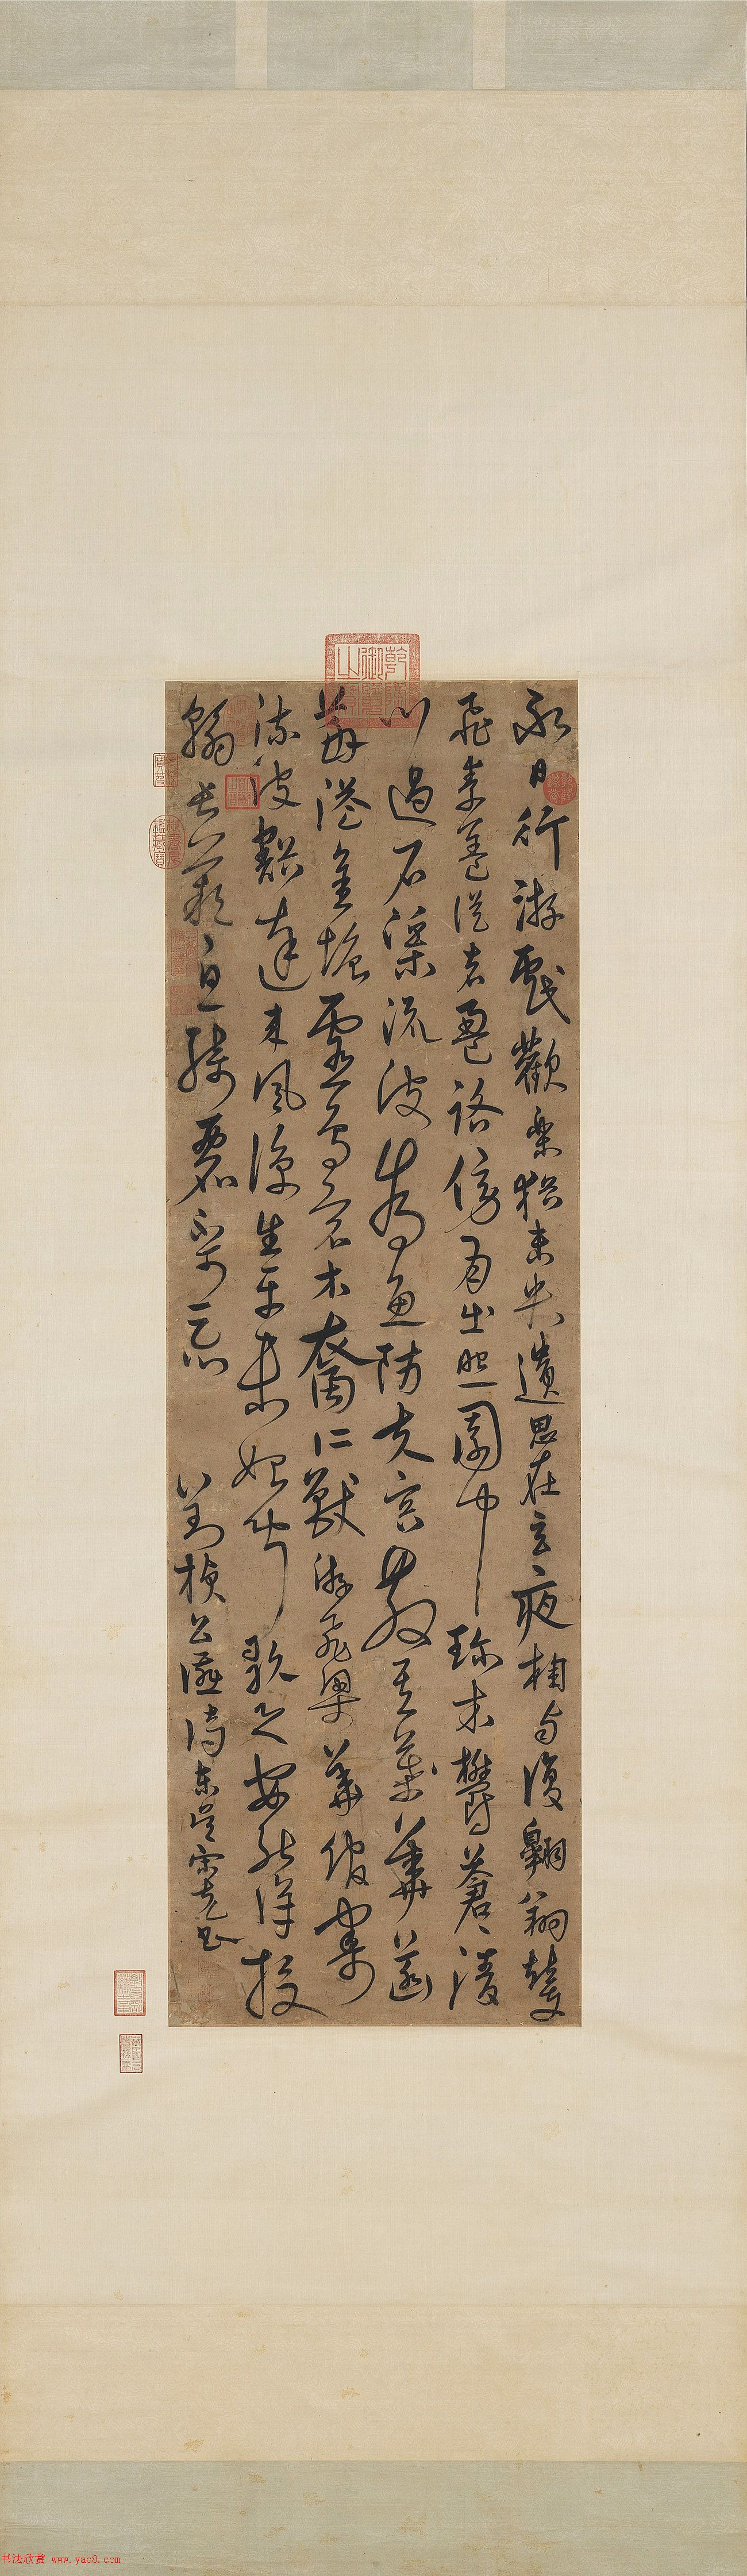 永日行游戲歡樂猶未央遺思在玄夜相與復翱翔輦
飛素蓋從者盈路傍月出照園中珍木鬱蒼〻清
川過石渠流波為魚防夫容散其葉華菡
萏溢金塘靈鳥宿水裔仁獸游飛梁華館寄
流波豁達来風涼生平未始聞歌之安能詳投
翰長歎息綺麗不可忘 劉楨公讌詩東吳宋克書
乾隆御覽之寶
书法欣赏 www.yac8.com